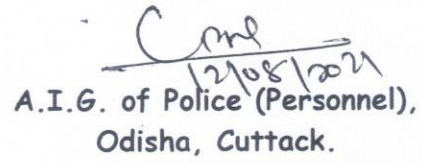 12/08/2021
A.I.G. of Police (Personnel),
Odisha, Cuttack.